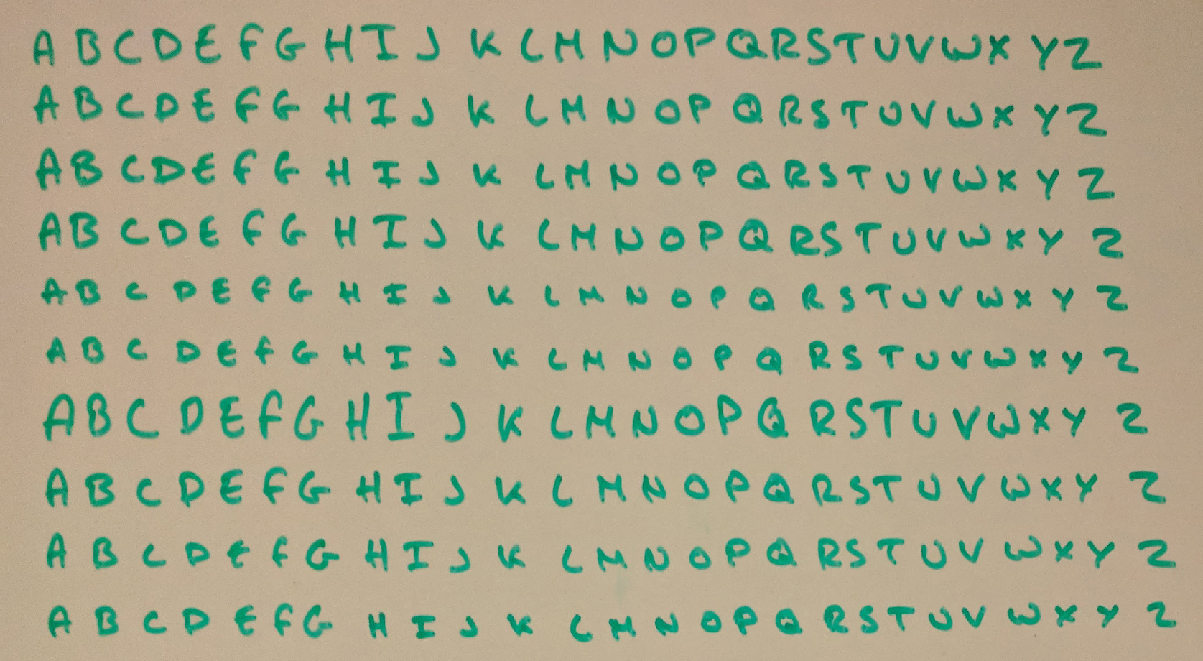 A B C D E F G H I J K L M N O P Q R S T U V W X Y Z
A B C D E F G H I J K L M N O P Q R S T U V W X Y Z
A B C D E F G H I J K L M N O P Q R S T U V W X Y Z
A B C D E F G H I J K L M N O P Q R S T U V W X Y Z
A B C D E F G H I J K L M N O P Q R S T U V W X Y Z
A B C D E F G H I J K L M N O P Q R S T U V W X Y Z
A B C D E F G H I J K L M N O P Q R S T U V W X Y Z
A B C D E F G H I J K L M N O P Q R S T U V W X Y Z
A B C D E F G H I J K L M N O P Q R S T U V W X Y Z
A B C D E F G H I J K L M N O P Q R S T U V W X Y Z